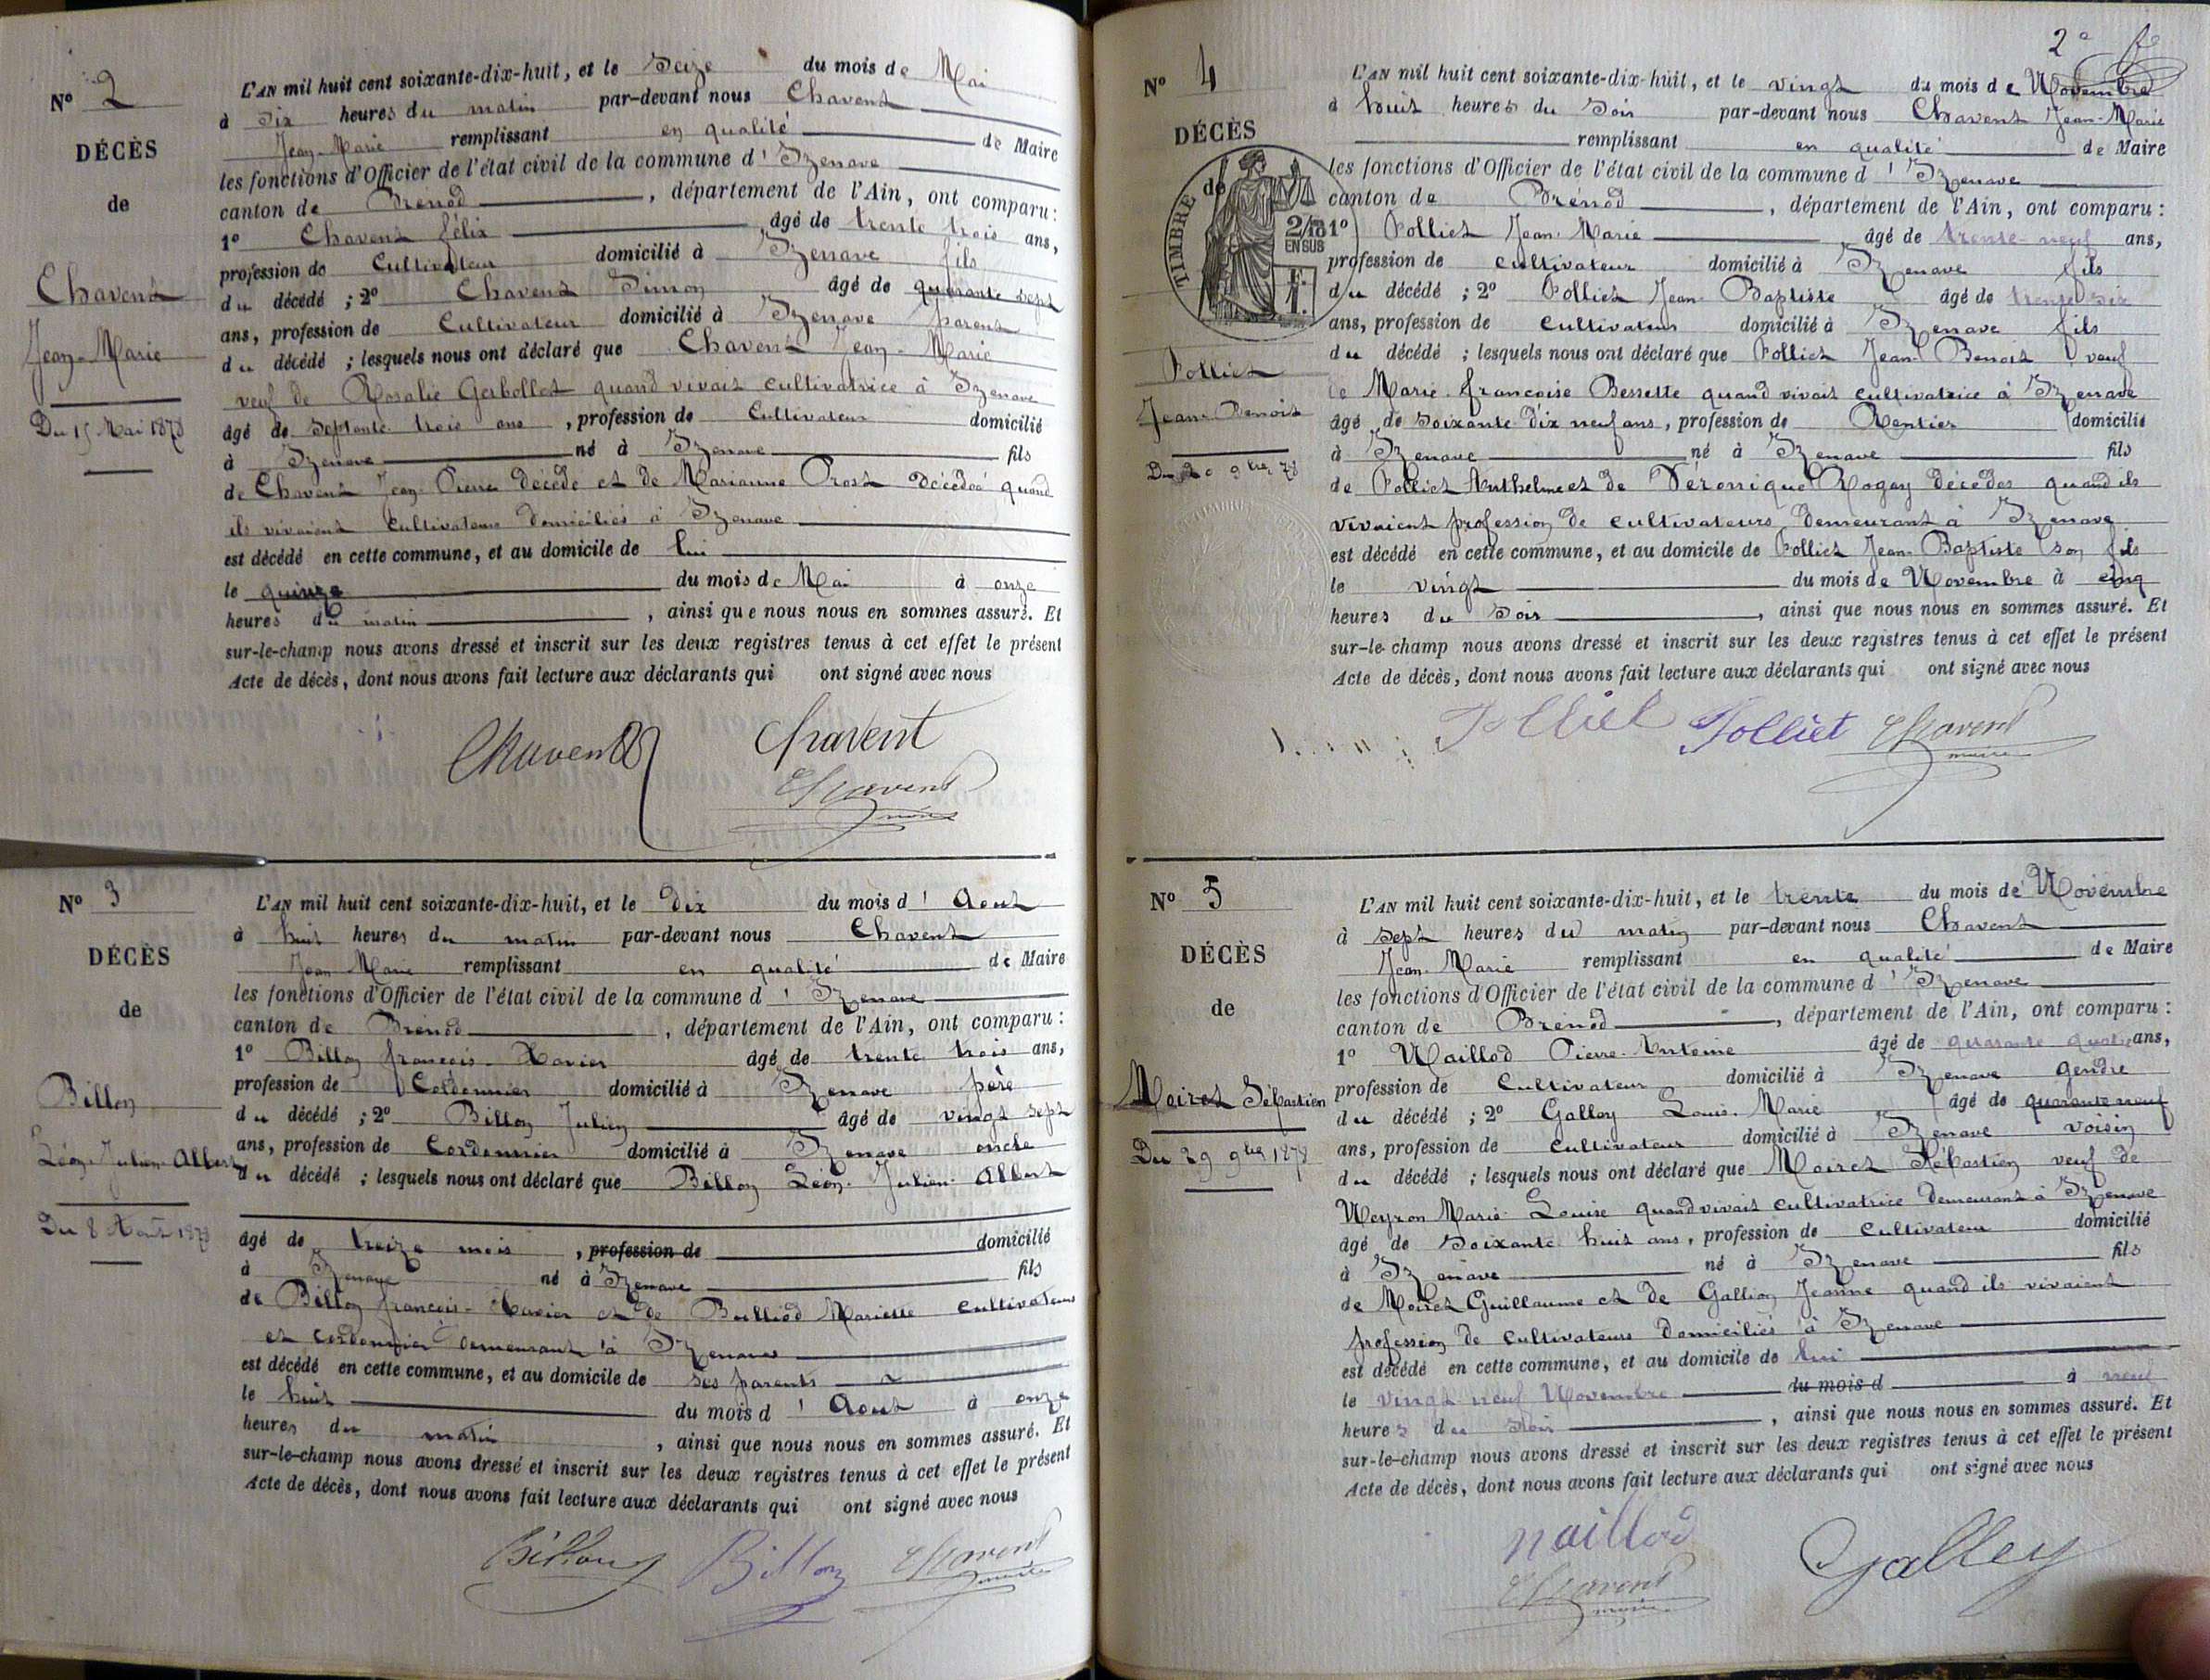 Nº 2
DÉCÈS
de
Chavent
Jean-Marie
Du 15 Mai 1878
L'AN mil huit cent soixante-dix-huit, et le Seize du mois de Mai
à Six heures du matin par-devant nous Chavent
Jean-Marie remplissant en qualité de Maire
les fonctions d'Officier de l'état civil de la commune d' Izenave
canton de Brénod, département de l'Ain, ont comparu :
1º Chavent félix âgé de trente trois ans,
profession de Cultivateur domicilié à Izenave fils
du décédé ; 2º Chavent Simon âgé de quarante sept
ans, profession de Cultivateur domicilié à Izenave parent
du décédé ; lesquels nous ont déclaré que Chavent Jean-Marie
veuf de Rosalie Gerbollet quand vivait cultivatrice à Izenave
âgé de Septante trois ans, profession de Cultivateur domicilié
à Izenave né à Izenave fils
de Chavent Jean-Pierre décédé et de Marianne Prost décédée quand
ils vivaient Cultivateurs domiciliés à Izenave
est décédé en cette commune, et au domicile de lui
le quinze du mois de Mai à onze
heures du matin, ainsi que nous nous en sommes assuré. Et
sur-le-champ nous avons dressé et inscrit sur les deux registres tenus à cet effet le présent
Acte de décès, dont nous avons fait lecture aux déclarants qui ont signé avec nous
Chavent Chavent
Chavent
maire
Nº 3
DÉCÈS
de
Billon
Léon-Julien-Albert
Du 8 Août 1878
L'AN mil huit cent soixante-dix-huit, et le dix du mois d' Aout
à huit heures du matin par-devant nous Chavent
Jean Marie remplissant en qualité de Maire
les fonctions d'Officier de l'état civil de la commune d' Izenave
canton de Brénod, département de l'Ain, ont comparu :
1º Billon françois-Xavier âgé de trente trois ans,
profession de Cordonnier domicilié à Izenave père
du décédé ; 2º Billon Julien âgé de vingt sept
ans, profession de Cordonnier domicilié à Izenave oncle
du décédé ; lesquels nous ont déclaré que Billon Léon-Julien-Albert
âgé de treize mois, profession de domicilié
à Izenave né à Izenave fils
de Billon françois-Xavier et de Bulliod Mariette cultivateurs
et cordonnier demeurant à Izenave
est décédé en cette commune, et au domicile de ses parents
le huit du mois d' Aout à onze
heures du matin, ainsi que nous nous en sommes assuré. Et
sur-le-champ nous avons dressé et inscrit sur les deux registres tenus à cet effet le présent
Acte de décès, dont nous avons fait lecture aux déclarants qui ont signé avec nous
Billon Billon Chavent
maire
2e
Nº 4
DÉCÈS
de
TIMBRE
2/10
EN SUS
1 F.
Folliet
Jean-Benoit
Du 20 9bre 78
L'AN mil huit cent soixante-dix-huit, et le vingt du mois de Novembre
à huit heures du Soir par-devant nous Chavent Jean-Marie
remplissant en qualité de Maire
les fonctions d'Officier de l'état civil de la commune d' Izenave
canton de Brénod, département de l'Ain, ont comparu :
1º Folliet Jean-Marie âgé de trente-neuf ans,
profession de cultivateur domicilié à Izenave fils
du décédé ; 2º Folliet Jean-Baptiste âgé de trente six
ans, profession de Cultivateur domicilié à Izenave fils
du décédé ; lesquels nous ont déclaré que Folliet Jean-Benoit veuf
de Marie-françoise Bessette quand vivait cultivatrice à Izenave
âgé de Soixante dix neuf ans, profession de Rentier domicilié
à Izenave né à Izenave fils
de Folliet Anthelme et de Véronique Rogay décédés quand ils
vivaient profession de cultivateurs demeurant à Izenave
est décédé en cette commune, et au domicile de Folliet Jean-Baptiste son fils
le vingt du mois de Novembre à cinq
heures du Soir, ainsi que nous nous en sommes assuré. Et
sur-le-champ nous avons dressé et inscrit sur les deux registres tenus à cet effet le présent
Acte de décès, dont nous avons fait lecture aux déclarants qui ont signé avec nous
Folliet Folliet Chavent
maire
Nº 5
DÉCÈS
de
Moiret Sébastien
Du 29 9bre 1878
L'AN mil huit cent soixante-dix-huit, et le trente du mois de Novembre
à sept heures du matin par-devant nous Chavent
Jean-Marie remplissant en qualité de Maire
les fonctions d'Officier de l'état civil de la commune d' Izenave
canton de Brénod, département de l'Ain, ont comparu :
1º Naillod Pierre-Antoine âgé de quarante quatre ans,
profession de Cultivateur domicilié à Izenave gendre
du décédé ; 2º Galley Louis-Marie âgé de quarante neuf
ans, profession de cultivateur domicilié à Izenave voisin
du décédé ; lesquels nous ont déclaré que Moiret Sébastien veuf de
Neyron Marie-Louise quand vivait cultivatrice demeurant à Izenave
âgé de Soixante huit ans, profession de Cultivateur domicilié
à Izenave né à Izenave fils
de Moiret Guillaume et de Gallion Jeanne quand ils vivaient
profession de cultivateurs domiciliés à Izenave
est décédé en cette commune, et au domicile de lui
le vingt neuf Novembre du mois d à neuf
heures du Soir, ainsi que nous nous en sommes assuré. Et
sur-le-champ nous avons dressé et inscrit sur les deux registres tenus à cet effet le présent
Acte de décès, dont nous avons fait lecture aux déclarants qui ont signé avec nous
naillod Galley
Chavent
maire